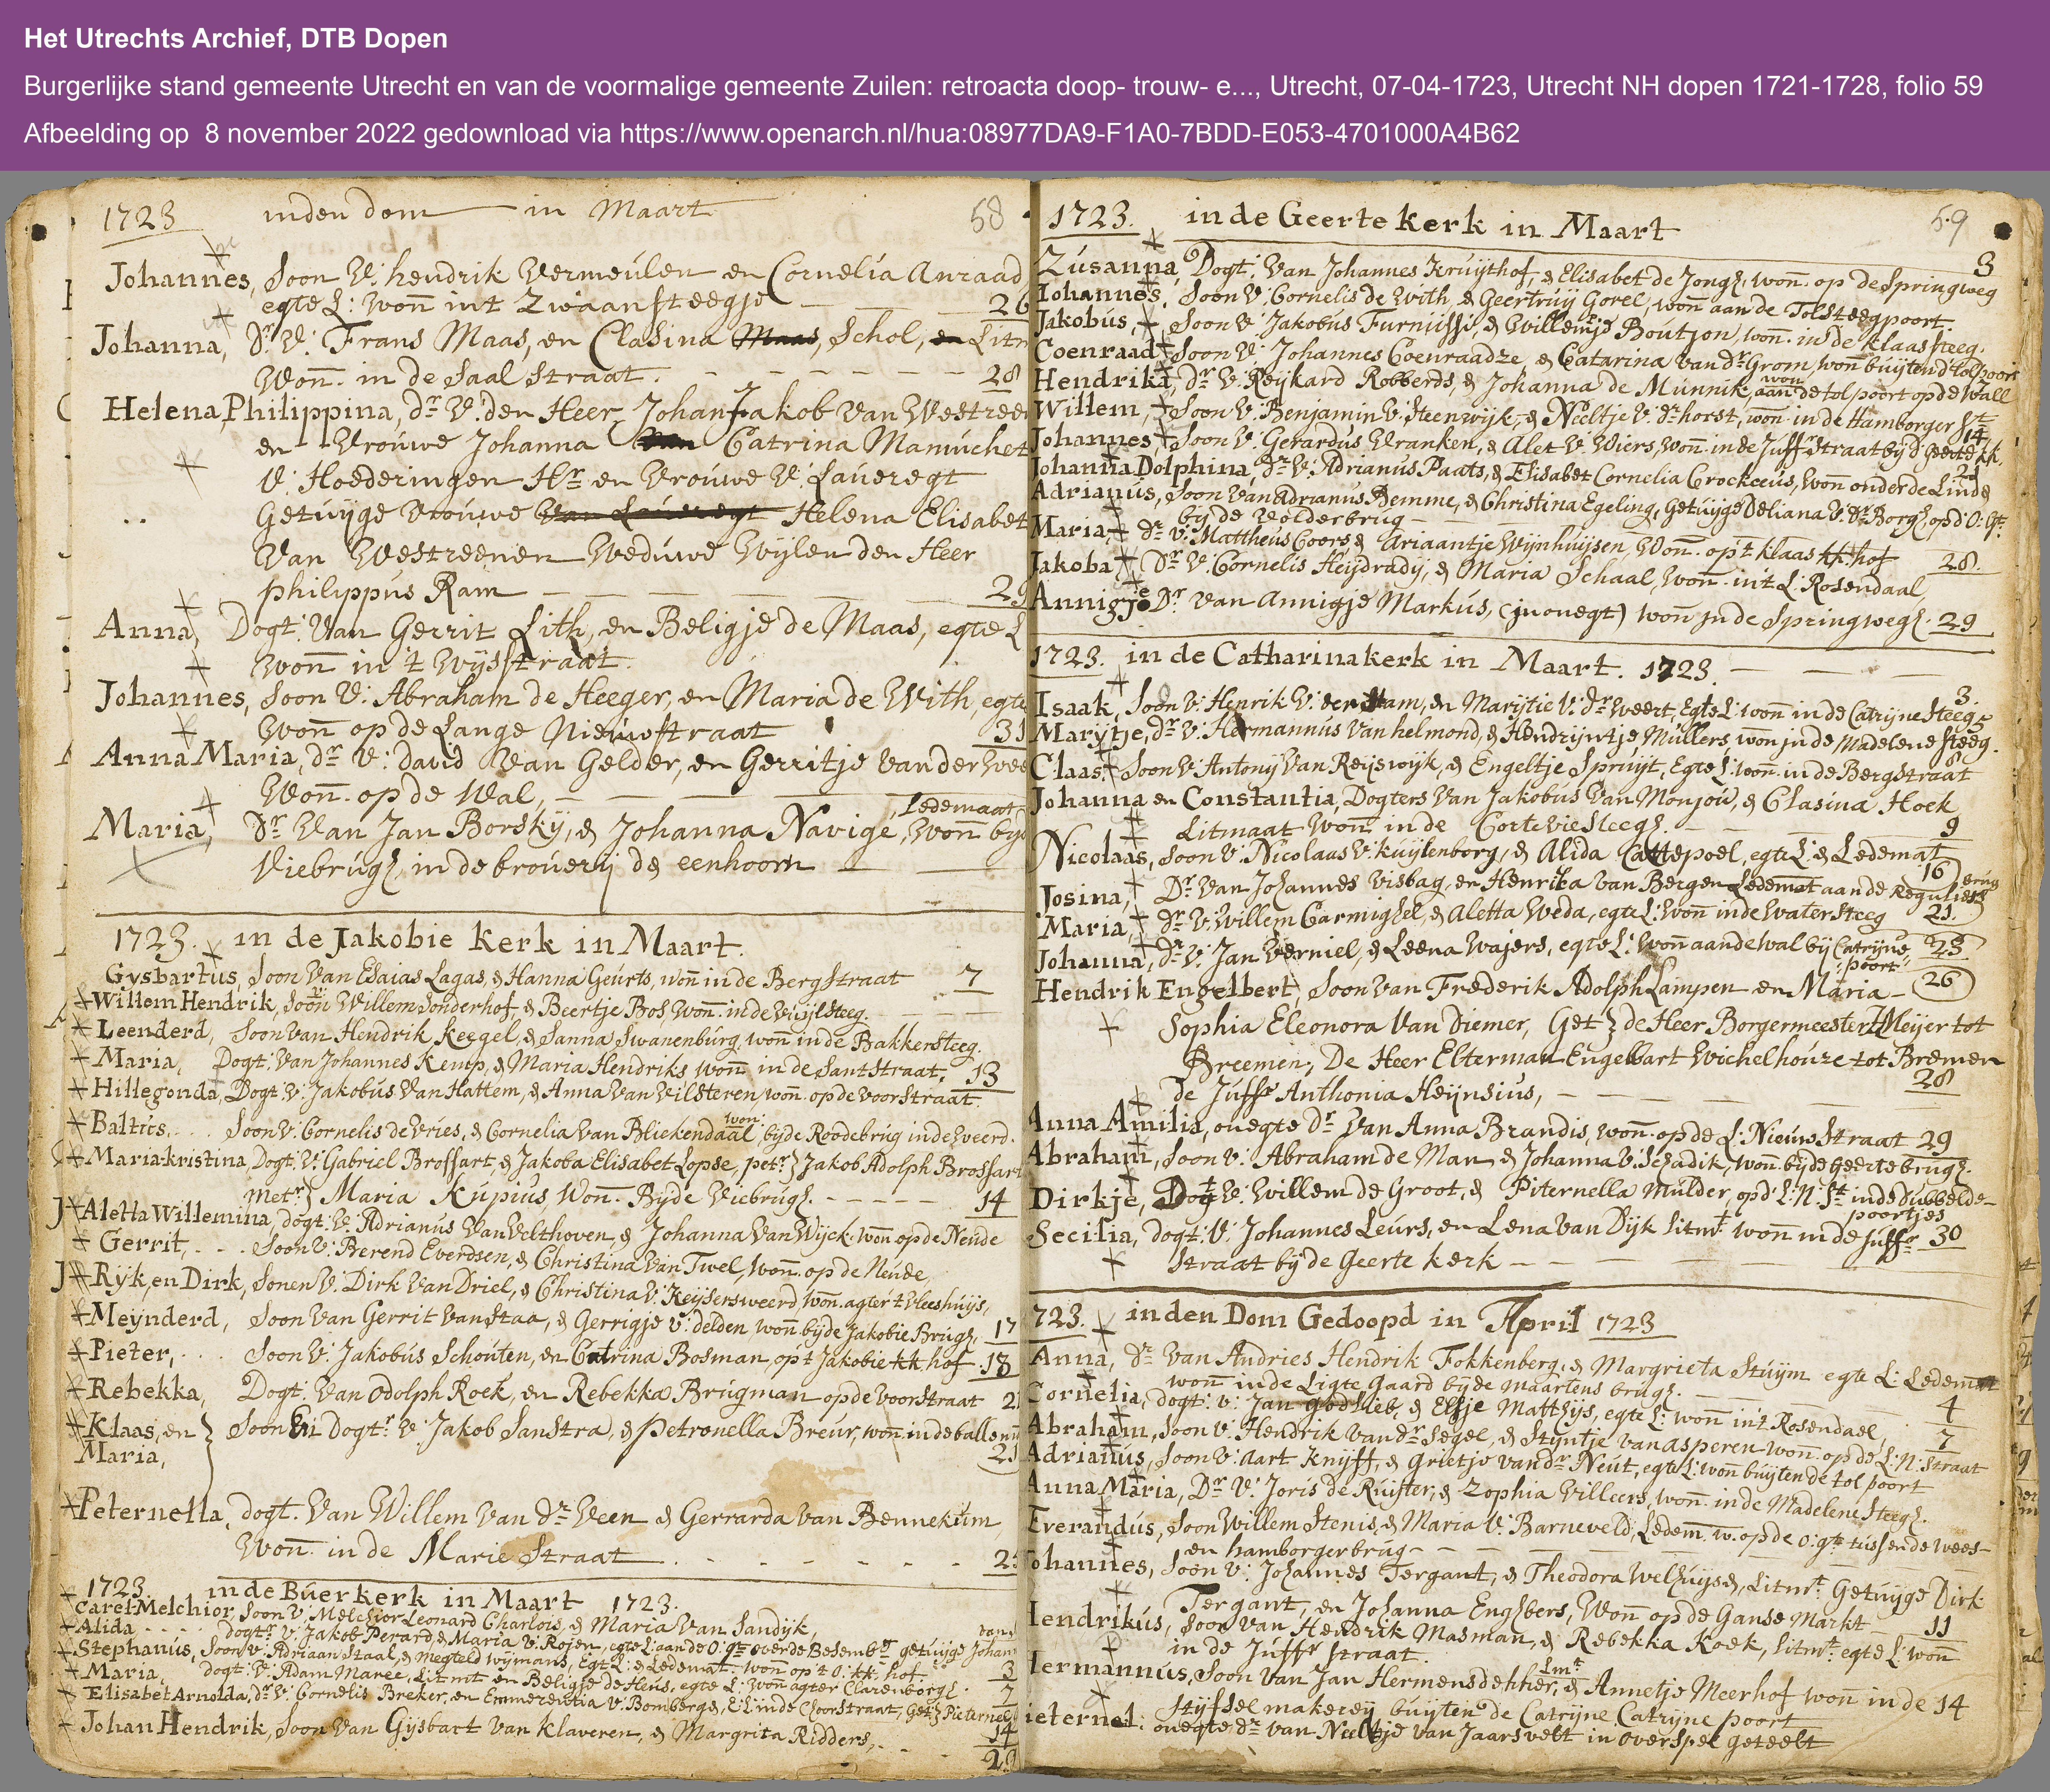 Het Utrechts Archief, DTB Dopen
Burgerlijke stand gemeente Utrecht en van de voormalige gemeente Zuilen: retroacta doop- trouw- e..., Utrecht, 07-04-1723, Utrecht NH dopen 1721-1728, folio 59
Afbeelding op 8 november 2022 gedownload via https://www.openarch.nl/hua:08977DA9-F1A0-7BDD-E053-4701000A4B62
1723 inden dom in Maart 58
Johannes, Soon V: hendrik Vermeulen en Cornelia Anraad
egte L: Won̄ int Zwaansteegje 26
Johanna, Dr. V: Frans Maas, en Clasina Maas, Schol, en Litm
Won̄. in de Saal straat. 28
Helena Philippina, dr V: den Heer Johan Jakob Van Westreen
en Vrouwe Johanna Van Catrina Mamuchet
V: Hoederingen Hr en Vrouwe V: Laueregt
Getuijge Vrouwe Van Laueregt Helena Elisabet
Van Westreenen Weduwe Wijlen den Heer
philippus Ram 29
Anna, Dogt: Van Gerrit Lith, en Beligje de Maas, egte L
Won̄ in 't Wijsstraat.
Johannes, Soon V: Abraham de Heeger, en Maria de With, egte
Won̄ op de Lange Nieuwstraat 31
Anna Maria, dr V: david Van Gelder, en Gerritje Vander Wee
Won̄. op de Wal,
Ledemaat
Maria, Dr Van Jan Borskij, & Johanna Navige, Won̄ bijd
Viebrug, in de brouerij de eenhoorn
1723. in de Jakobie kerk in Maart.
Gysbartus, Soon Van Esaias Lagas, & Hanna Geurts, won̄ in de Bergstraat 7
Willem Hendrik, Soon V: Willem Sonderhof, & Beertje Bos, Won̄. in de Vuijlsteeg.
Leenderd, Soon van Hendrik Keegel, & Sanna Swanenburg, won̄ in de Bakkersteeg.
Maria, Dogt: Van Johannes Kemp, & Maria Hendriks won̄ in de Santstraat, 13
Hillegonda, Dogt: V: Jakobus Van Hattem, & Anna Van Vilsteren, won̄. op de Voorstraat.
Baltus, Soon V: Cornelis de Vries, & Cornelia Van Bliekendaal, won: bijde Roodebrug inde weerd.
Maria kristina, Dogt: V: Gabriel Brossart, & Jakoba Elisabet Lopse, petr: Jakob Adolph Brossart
Metr: Maria Kupius Won̄. Bijde Viebrug. 14
Aletta Willemina, dogt: V: Adrianus Van Velthoven, & Johanna Van Wijck, won̄ op de Neude
Gerrit, Soon V: Berend Everdsen, & Christina Van Twel, Won̄. op de Neude,
Ryk, en Dirk, Sonen V: Dirk Van Driel, & Christina V: Keijsersweerd, won̄. agter 't Vleeshuijs,
Meynderd, Soon Van Gerrit Van Staa, & Gerrigje V: delden, won̄ bijde Jakobie Brug, 17
Pieter, Soon V: Jakobus Schouten, en Catrina Bosman, op 't Jakobie kk. hof 18
Rebekka, Dogt: Van Odolph Roek, en Rebekka Brugman op de Voorstraat 21
Klaas, en Soon En Dogtr: V: Jakob Sanstra, & petronella Breur, won̄ in de ballemu
Maria,
Peternella, dogt. Van Willem Van dr Veen & Gerrarda Van Bennekum
Won̄. in de Marie straat
1723. in de Buerkerk in Maart 1723.
Carel Melchior, Soon V: Melchior Leonard Charlois, & Maria Van Sandijk,
Alida, dogtr V: Jakob Perard, & Maria V: Rojen, egte L: aande O: gt overde Besembr getuijge Johan
Stephanus, Soon V: Adriaan Staal, & Megteld Wijmans, Egt L: & Ledemat. won̄ op 't O: kk. hof 3
Maria, dogt: V: Adam Maree, Litmt en Beligje de Heus, egte L: Won̄ agter Clarenborg. 7
Elisabet Arnolda, dr V: Cornelis Breker, en Emmerentia V: Bomberge, Choorstraat, get: Pieternel
Johan Hendrik, Soon Van Gijsbart Van Klaveren, & Margrita Ridders, 14
1723. in de Geerte kerk in Maart 59
Zusanna, Dogt: Van Johannes Kruijthof, & Elisabet de Jong, won̄. op de Springweg 3
Iohannes, Soon V: Cornelis de With, & Geertruij Gorel, won̄ aan de Tolsteegpoort.
Jakobus, Soon V: Jakobus Furnusse, & Willemje Boutson, won̄. in de klaassteeg.
Coenraad, Soon V: Johannes Coenraadze & Catarina Van dr Grom, won̄ buijten d' tolpoort
Hendrika, dr V: Reijkard Robberds, & Johanna de Munnik, won aan de tolpoort op de Wall
Willem, Soon V: Benjamin V: Steenwijk, & Neeltje V: dr horst, won̄. in de Hamborger St
Johannes, Soon V: Gerardus Vranken, & Alet V: Wiers, won̄. in de Juffr straat bij d' geerte kk. 14
Johanna Dolphina, dr V: Adrianus Paats, & Elisabet Cornelia Crockeeus, won̄ onder de Linde 21
Adrianus, Soon Van Adrianus Demme, & Christina Egeling, Getuijge Deliana V: dr Borg, op d' O: gt:
bij de Volderbrug
Maria, dr V: Mattheus Coors & Ariaantje Wijnhuijsen, Won̄. op 't klaas kk. hof
Jakoba, Dr V: Cornelis Heijdradij, & Maria Schaal, won̄. in 't L: Rosendaal, 28.
Annigje, Dr Van Annigje Markus, (in onegt) won̄ in de Springweg. 29
1723. in de Catharinakerk in Maart. 1723.
Isaak, Soon V: Henrik V: der Ham, en Marijtie V: dr Weert, Egte L: won̄ in de Catrijne steeg. 3.
Marytje, dr V: Harmannus Van helmond, & Hendrijntje Mullers, won in de Madelene steeg.
Claas, Soon V: Antonij Van Reijswijk, & Engeltje Spruijt, Egte L: won̄. in de Bergstraat 8
Johanna en Constantia, Dogters Van Jakobus Van Monjou, & Clasina Hoek
Litmaat won̄ in de Corte Viesteeg. 9
Nicolaas, Soon V: Nicolaas V: kuijlenborg, & Alida Cattepoel, egte L: & Ledemat
Josina, Dr Van Johannes Visbag, en Henrika Van Bergen Ledemat aan de Reguliers brug 16
Maria, dr V: Willem Carmighel, & Aletta Weda, egte L: Won̄ in de Watersteeg 21.
Johanna, dr V: Jan Verniel, & Leena Wajers, egte L: Won̄ aan de Wal bij Catrijne poort 23
Hendrik Engelbert, Soon Van Frederik Adolph Lampen en Maria 26
Sophia Eleonora Van Diemer, Get: de Heer Borgermeester Meijer tot
Breemen, De Heer Elterman Engelbart Wichelhouze tot Bremen
de Juffr Anthonia Heijnsius, 28
Anna Amilia, onegte dr Van Anna Brandis, won̄. op de L: Nieuw Straat 29
Abraham, Soon V: Abraham de Man, & Johanna V: Schadik, won̄. bij de Geertebrug.
Dirkje, Dogt V: Willem de Groot, & Piternella Mulder, op d' L: N: St in de dubbelde
poortjes
Secilia, dogt: V: Johannes Leurs, en Lena Van Dijk litmt won̄ in de Juffr 30
Straat bij de Geerte kerk
1723. inden Dom Gedoopd in April 1723
Anna, dr Van Andries Hendrik Fokkenberg, & Margrieta Stuijm egte L: Ledemat
won̄ in de Ligte Gaard bij de Maartens brug.
Cornelia, dogt: V: Jan godslieb, & Elsje Matthijs, egte L: won̄ in 't Rosendael 4
Abraham, Soon V: Hendrik Van dr Segel, & Stijntje Van Asperen won̄ op de L: N: straat 7
Adrianus, Soon V: Aart Knijff, & Grietje Van dr Neut, egte L: won̄ buijten de tolpoort
Anna Maria, Dr V: Joris de Ruijter, & Zophia Villeers, won̄. in de Madelene steeg.
Everandus, Soon Willem Stenis, & Maria V: Barneveld, Ledem. w. op de O: gt tussen de Wees-
en hamborgerbrug
Johannes, Soon V: Johannes Tergant, & Theodora Welhuijse, Litmt Getuijge Dirk
Tergant, en Johanna Enghbers, Won̄ op de Ganse Markt 11
Hendrikus, Soon Van Hendrik Masman, & Rebekka Koek, litmt egte L: won̄
in de Juffr straat.
Hermannus, Soon Van Jan Hermensdekker, Lmt & Annetje Meerhof won̄ in de 14
Stijfsel makerij buijten de Catrijne Catrijne poort
Pieternel: onegte dr Van Neeltje van Jaarsvelt in overspel geteelt